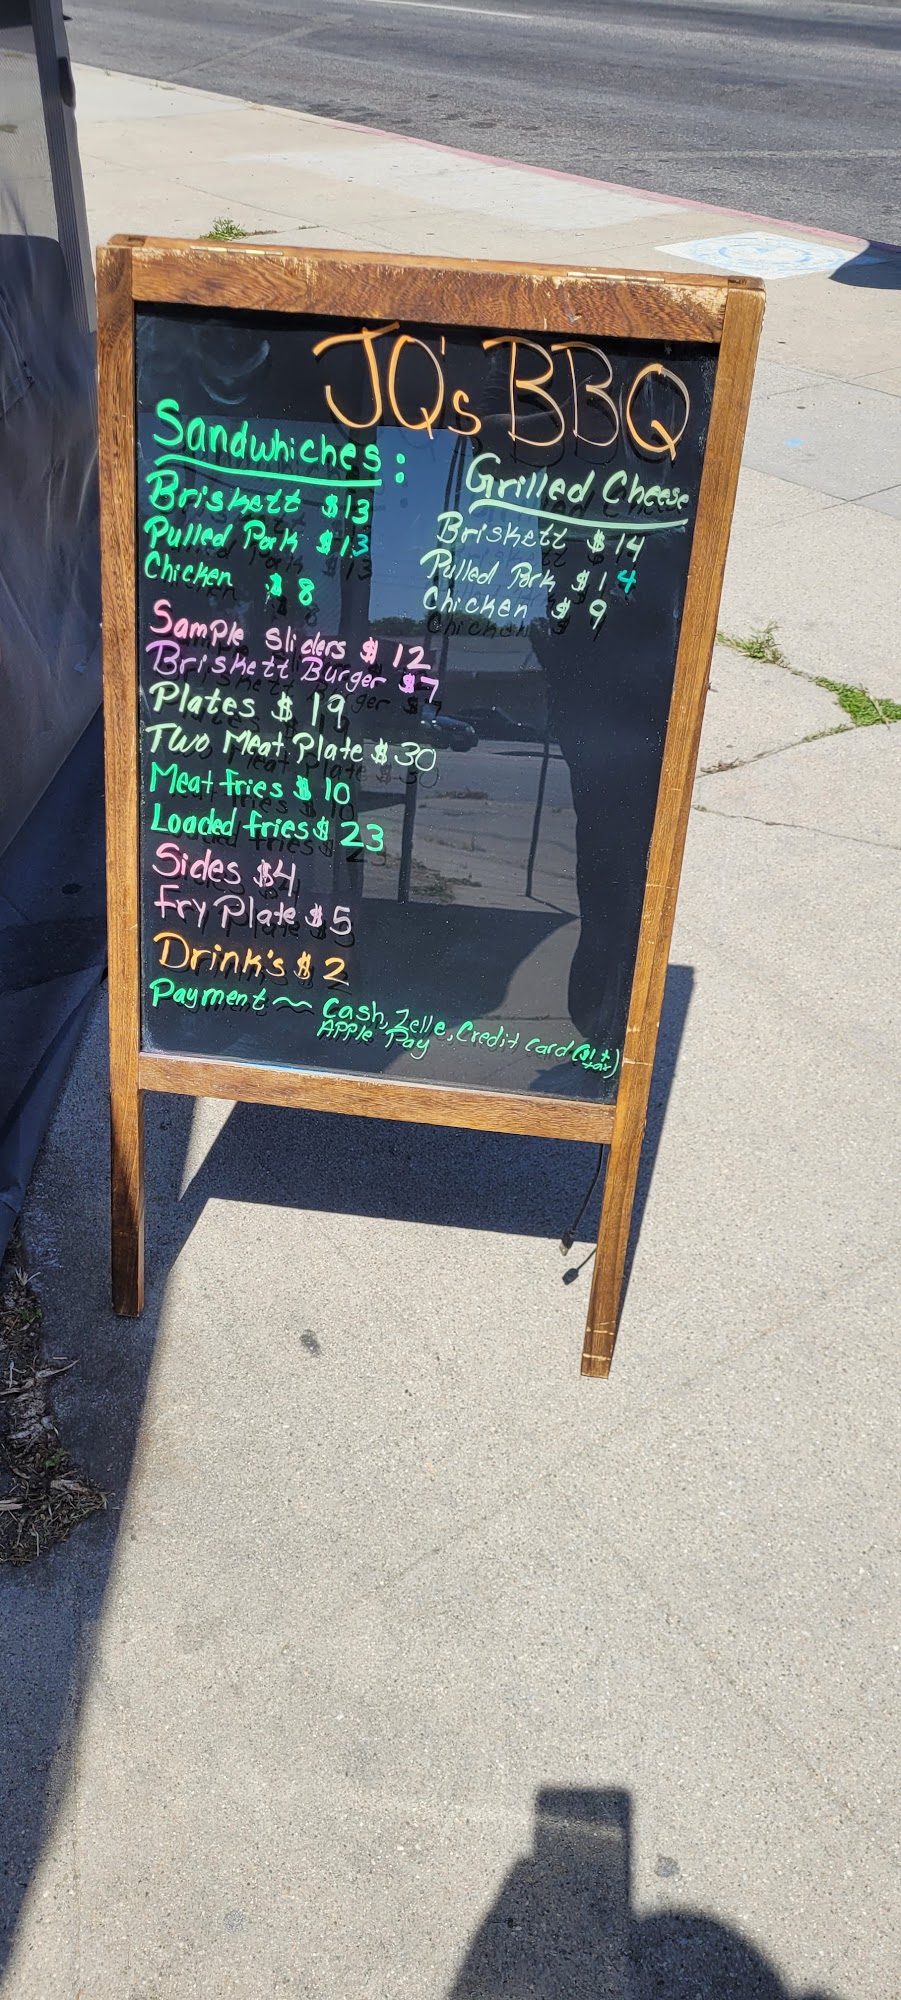 JQ's BBQ
Sandwhiches:
Briskett $13
Pulled Pork $13
Chicken $8
Grilled Cheese
Briskett $14
Pulled Pork $14
Chicken $9
Sample Sliders $12
Briskett Burger $7
Plates $19
Two Meat Plate $30
Meat fries $10
Loaded fries $23
Sides $4
Fry Plate $5
Drink's $2
Payment ~ Cash, Zelle, Credit Card ($1 + tax)
Apple Pay